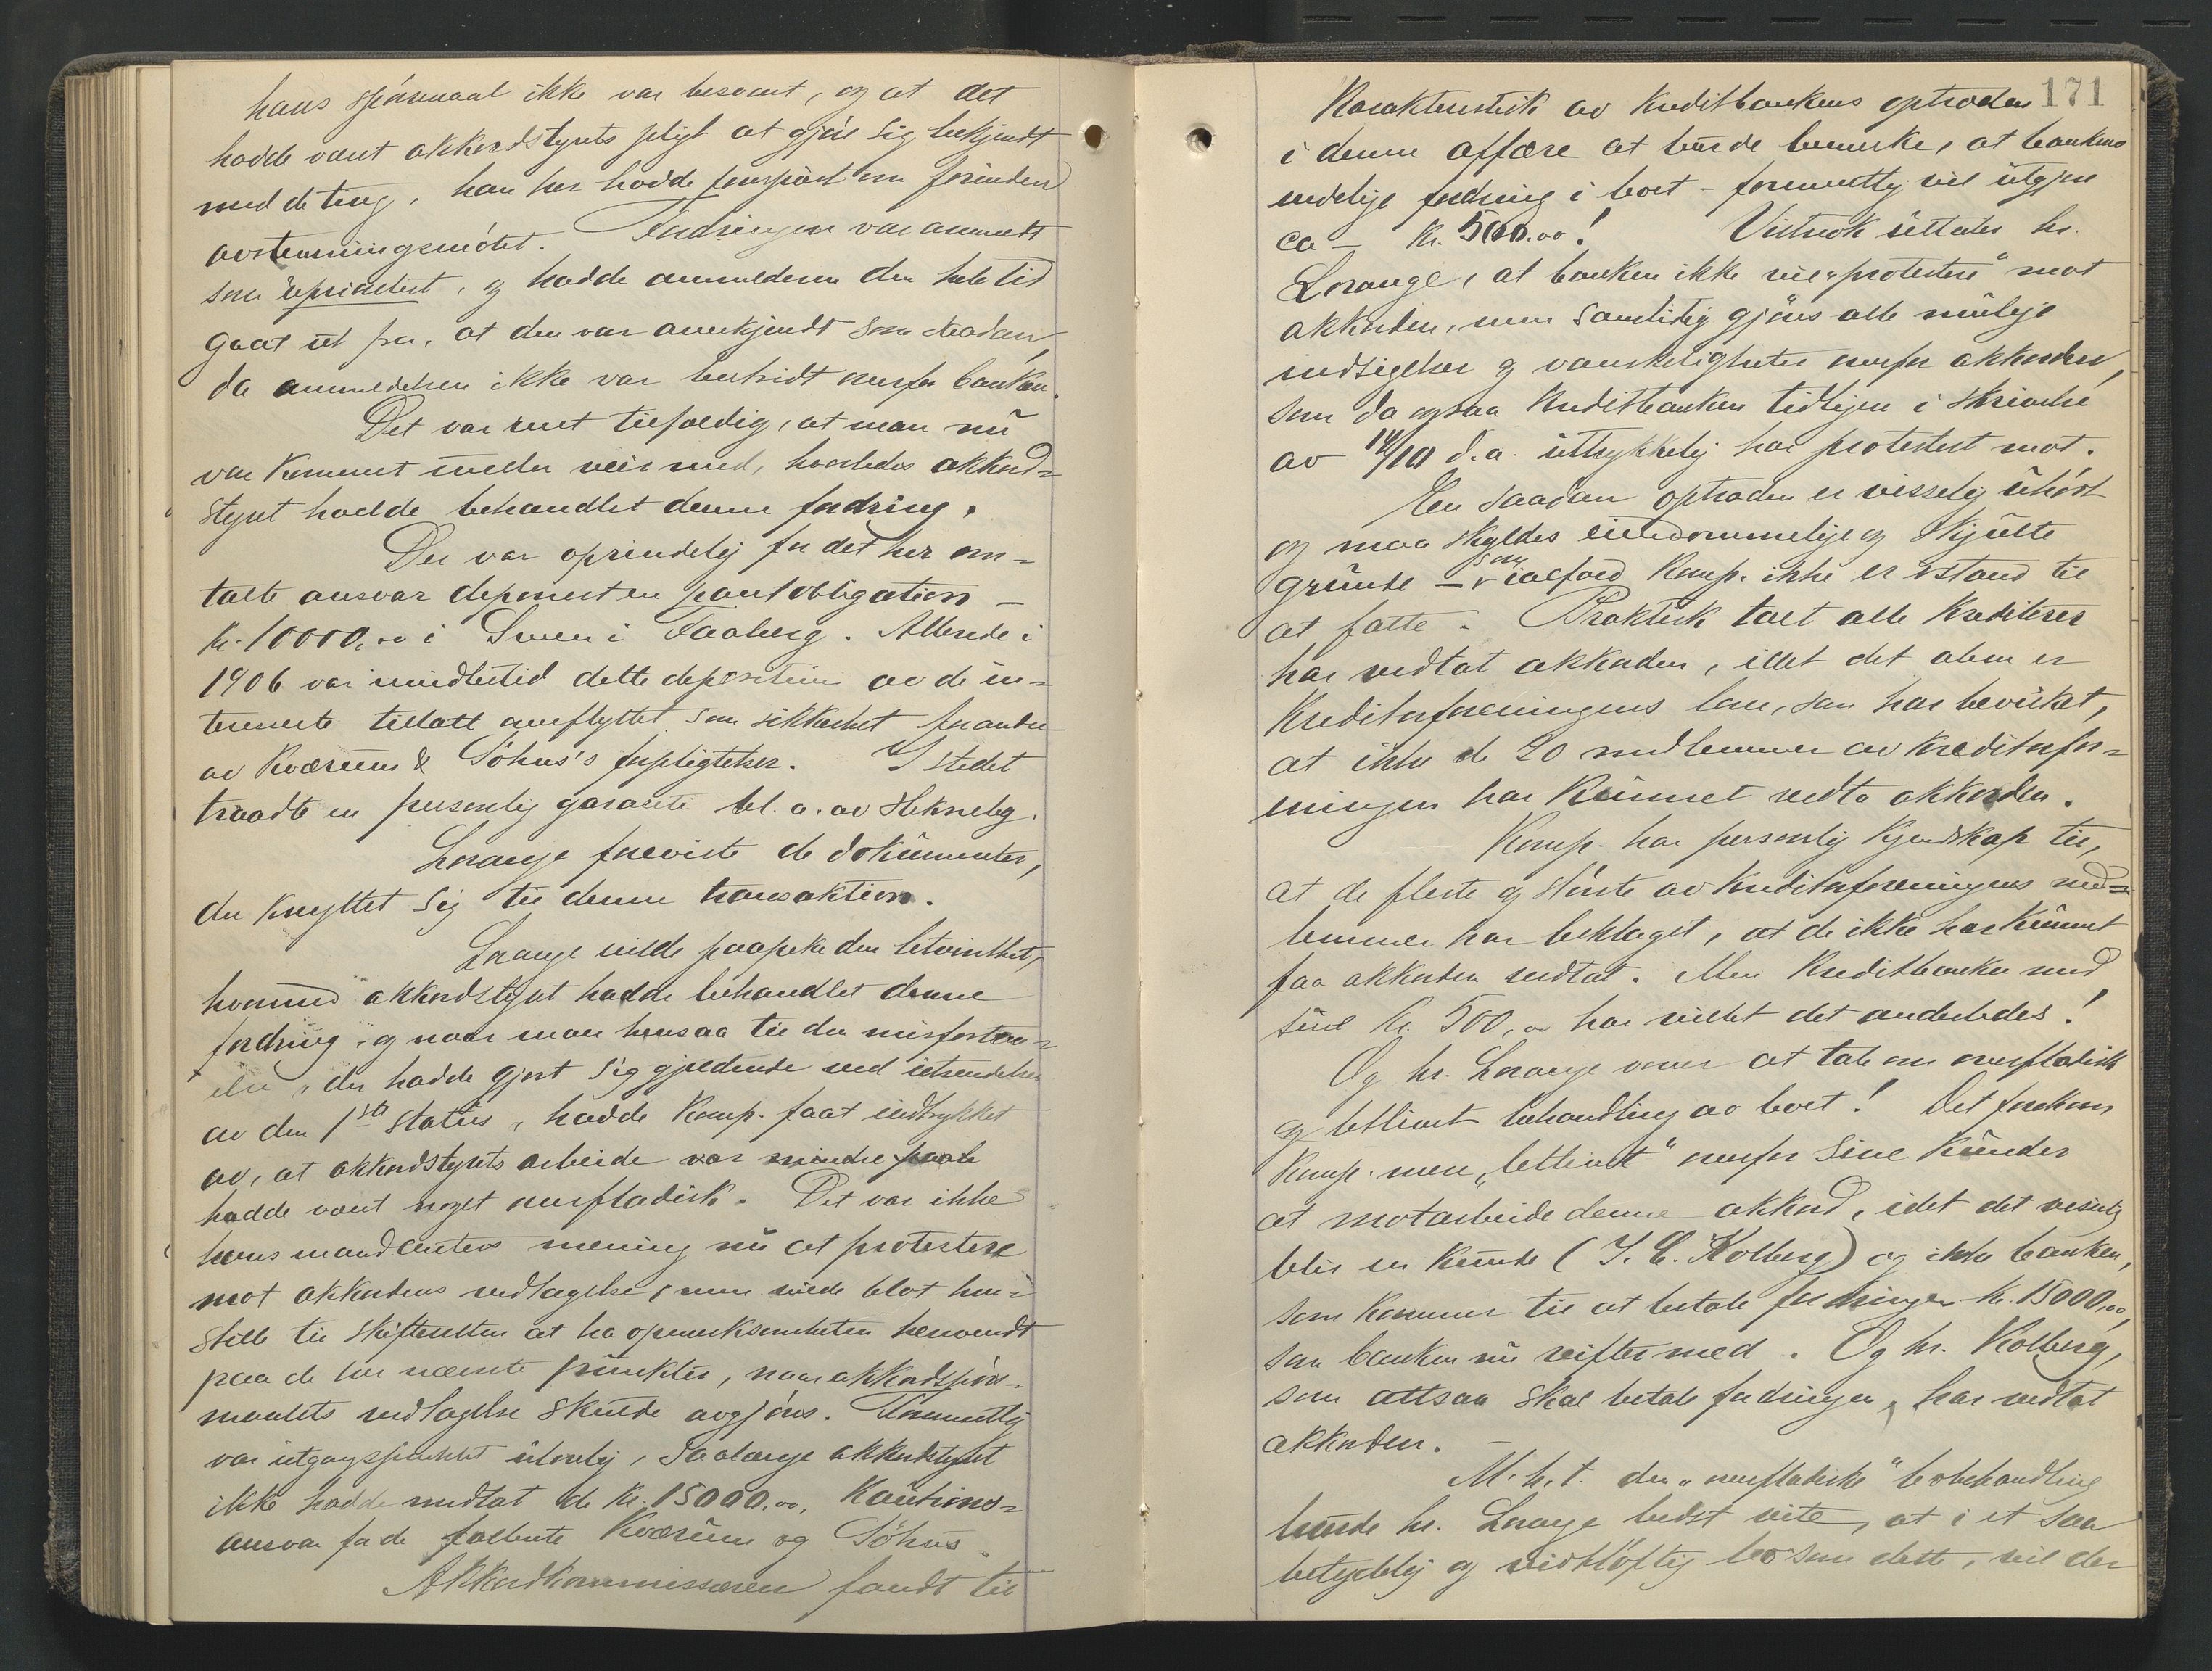 hans spörsmaal ikke var besvart, og at det
hadde været akkordstyrets pligt at gjöre sig bekjendt
med de ting, han her hadde forespurt om forinden
avstemningsmötet. Fordringen var anmeldt
som "uprioritert", og hadde anmelderen den hele tid
gaat ut fra, at den var anerkjendt som saadan,
da anmeldelsen ikke var bestridt overfor banken.
Det var rent tilfældig, at man nu
var kommet under veir med, hvorledes akkord=
styret hadde behandlet denne fordring.
Der var oprindelig for det her om=
talte ansvar deponert en pantobligation –
kr. 10000,00 i Sveen i Faaberg. Allerede i
1906 var imidlertid dette depositum av de in=
teresserte tillatt overflyttet som sikkerhet for andre
av Kværum & Söhus's forpligtelser. I stedet
traadte en personlig garanti bl. a. av
Lorange foreviste de dokumenter,
der knyttet sig til denne transaktion.
Lorange vilde paapeke den letvinthet,
hvormed akkordstyret hadde behandlet denne
fordring og naar man hensaa til den misforstaa=
else, der hadde gjort sig gjældende ved utsendelsen
av den 1ste status, hadde komp. faat indtrykket
av, at akkordstyrets arbeide var mindre
hadde været noget overfladisk. Det var ikke
hans mandanters mening nu at protestere
mot akkordens vedtagelse, men vilde blot hen=
stille til skifteretten at ha opmerksomheten henvendt
paa de her nævnte punkter, naar akkordspörs=
maalets vedtagelse skulde avgjöres. Formentlig
var utgangspunktet ulovlig, saalænge akkordstyret
ikke hadde medtat de kr. 15000.00. Kautions=
ansvar for de fallerte Kværum og Söhus.
Akkordkommissæren fandt til
171
Karakteristisk av Kreditbankens optræden
i denne affære at burde bemerke, at bankens
endelige fordring i boet – formentlig vil utgjøre
ca – kr. 500.00! Vistnok uttaler hr.
Lorange, at banken ikke vil "protestere" mot
akkorden, men samtidig gjöres alle mulige
indsigelser og vanskeligheter overfor akkorden,
som da ogsaa Kreditbanken tidligere i skrivelse
av 14/10 d.a. uttrykkelig har protestert mot.
En saadan optræden er visselig uhört
og maa skyldes eiendommelige og skjulte
grunde – som ialfald komp. ikke er istand til
at fatte. Praktisk talt alle kreditorer
har vedtat akkorden, idet det alene er
Kreditorforeningens love, som har bevirket,
at ikke de 20 medlemmer av Kreditorfor=
eningen har kunnet vedta akkorden.
Komp. har personlig kjendskap til,
at de fleste og störste av Kreditorforeningens med=
lemmer har beklaget, at de ikke har kunnet
faa akkorden vedtat. Men Kreditbanken med
sine kr. 500,00 har villet det anderledes!
Og hr. Lorange vover at tale om overfladisk
og letlivet behandling av boet! Det forekom
komp. mere "letlivet" overfor sine kunder
at motarbeide denne akkord, idet det visselig
blir en kunde (J. C. Kolberg) og ikke banken,
som kommer til at betale fordringen kr. 15000,00,
som banken nu vifter med. Og hr. Kolberg,
som altsaa skal betale fordringen, har vedtat
akkorden. –
M. h. t. den "overfladiske" bobehandling
burde hr. Lorange bedst vite, at i et saa
betydelig og vidtlöftig bo som dette, vil der